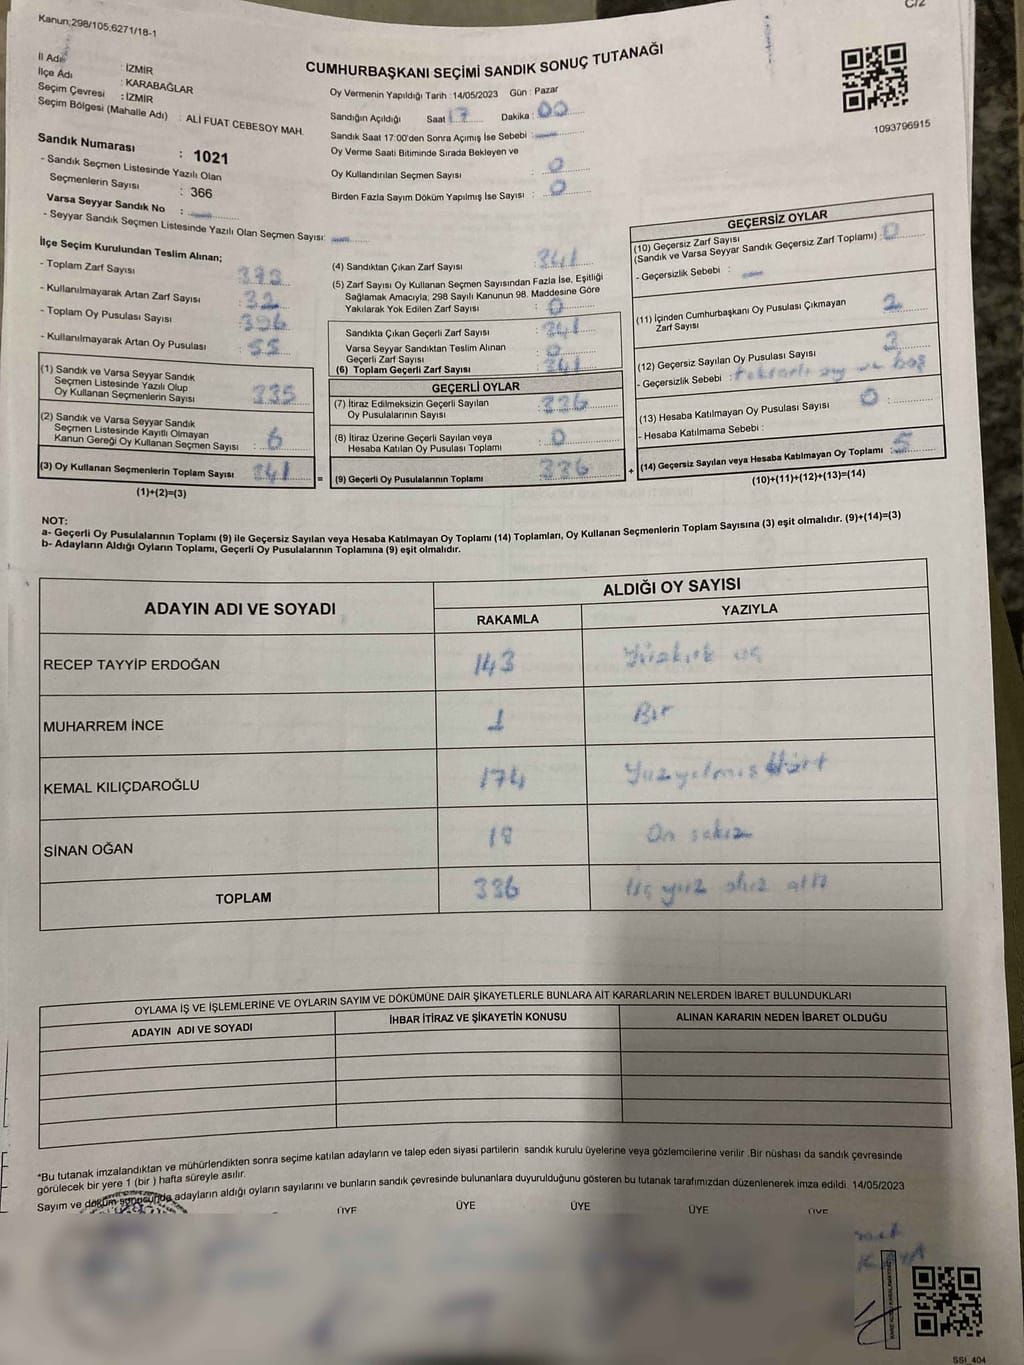 Kanun,298/105,6271/18-1
C/2
CUMHURBAŞKANI SEÇİMİ SANDIK SONUÇ TUTANAĞI
İl Adı : İZMİR
İlçe Adı : KARABAĞLAR
Seçim Çevresi : İZMİR
Seçim Bölgesi (Mahalle Adı) : ALİ FUAT CEBESOY MAH.
Sandık Numarası : 1021
- Sandık Seçmen Listesinde Yazılı Olan
Seçmenlerin Sayısı : 366
Varsa Seyyar Sandık No :
- Seyyar Sandık Seçmen Listesinde Yazılı Olan Seçmen Sayısı:
Oy Vermenin Yapıldığı Tarih :14/05/2023 Gün : Pazar
Sandığın Açıldığı Saat 17 Dakika : 00
Sandık Saat 17:00'den Sonra Açımış İse Sebebi :
Oy Verme Saati Bitiminde Sırada Bekleyen ve
Oy Kullandırılan Seçmen Sayısı : 0
Birden Fazla Sayım Döküm Yapılmış İse Sayısı : 0
1093796915
İlçe Seçim Kurulundan Teslim Alınan;
- Toplam Zarf Sayısı : 373
- Kullanılmayarak Artan Zarf Sayısı : 32
- Toplam Oy Pusulası Sayısı : 396
- Kullanılmayarak Artan Oy Pusulası : 55
(1) Sandık ve Varsa Seyyar Sandık
Seçmen Listesinde Yazılı Olup
Oy Kullanan Seçmenlerin Sayısı : 335
(2) Sandık ve Varsa Seyyar Sandık
Seçmen Listesinde Kayıtlı Olmayan
Kanun Gereği Oy Kullanan Seçmen Sayısı : 6
(3) Oy Kullanan Seçmenlerin Toplam Sayısı 341
(1)+(2)=(3)
(4) Sandıktan Çıkan Zarf Sayısı : 341
(5) Zarf Sayısı Oy Kullanan Seçmen Sayısından Fazla İse, Eşitliği
Sağlamak Amacıyla; 298 Sayılı Kanunun 98. Maddesine Göre
Yakılarak Yok Edilen Zarf Sayısı : 0
Sandıkta Çıkan Geçerli Zarf Sayısı : 341
Varsa Seyyar Sandıktan Teslim Alınan
Geçerli Zarf Sayısı : 0
(6) Toplam Geçerli Zarf Sayısı : 341
GEÇERLİ OYLAR
(7) İtiraz Edilmeksizin Geçerli Sayılan
Oy Pusulalarının Sayısı : 336
(8) İtiraz Üzerine Geçerli Sayılan veya
Hesaba Katılan Oy Pusulası Toplamı : 0
= (9) Geçerli Oy Pusulalarının Toplamı : 336 +
GEÇERSİZ OYLAR
(10) Geçersiz Zarf Sayısı
(Sandık ve Varsa Seyyar Sandık Geçersiz Zarf Toplamı) : 0
- Geçersizlik Sebebi :
(11) İçinden Cumhurbaşkanı Oy Pusulası Çıkmayan
Zarf Sayısı : 2
(12) Geçersiz Sayılan Oy Pusulası Sayısı : 3
- Geçersizlik Sebebi : oy ve boş
(13) Hesaba Katılmayan Oy Pusulası Sayısı 0 :
- Hesaba Katılmama Sebebi :
(14) Geçersiz Sayılan veya Hesaba Katılmayan Oy Toplamı : 5
(10)+(11)+(12)+(13)=(14)
NOT:
a- Geçerli Oy Pusulalarının Toplamı (9) ile Geçersiz Sayılan veya Hesaba Katılmayan Oy Toplamı (14) Toplamları, Oy Kullanan Seçmenlerin Toplam Sayısına (3) eşit olmalıdır. (9)+(14)=(3)
b- Adayların Aldığı Oyların Toplamı, Geçerli Oy Pusulalarının Toplamına (9) eşit olmalıdır.
ADAYIN ADI VE SOYADI ALDIĞI OY SAYISI
RAKAMLA YAZIYLA
RECEP TAYYİP ERDOĞAN 143 Yüzkırk üç
MUHARREM İNCE 1 Bir
KEMAL KILIÇDAROĞLU 174 Yüzyetmiş dört
SİNAN OĞAN 18 On sekiz
TOPLAM 336 Üç yüz otuz altı
OYLAMA İŞ VE İŞLEMLERİNE VE OYLARIN SAYIM VE DÖKÜMÜNE DAİR ŞİKAYETLERLE BUNLARA AİT KARARLARIN NELERDEN İBARET BULUNDUKLARI
ADAYIN ADI VE SOYADI İHBAR İTİRAZ VE ŞİKAYETİN KONUSU ALINAN KARARIN NEDEN İBARET OLDUĞU
*Bu tutanak imzalandıktan ve mühürlendikten sonra seçime katılan adayların ve talep eden siyasi partilerin sandık kurulu üyelerine veya gözlemcilerine verilir .Bir nüshası da sandık çevresinde
görülecek bir yere 1 (bir ) hafta süreyle asılır.
Sayım ve döküm sonucunda adayların aldığı oyların sayılarını ve bunların sandık çevresinde bulunanlara duyurulduğunu gösteren bu tutanak tarafımızdan düzenlenerek imza edildi. 14/05/2023
ÜYE ÜYE ÜYE ÜYE ÜYE
SSI_404